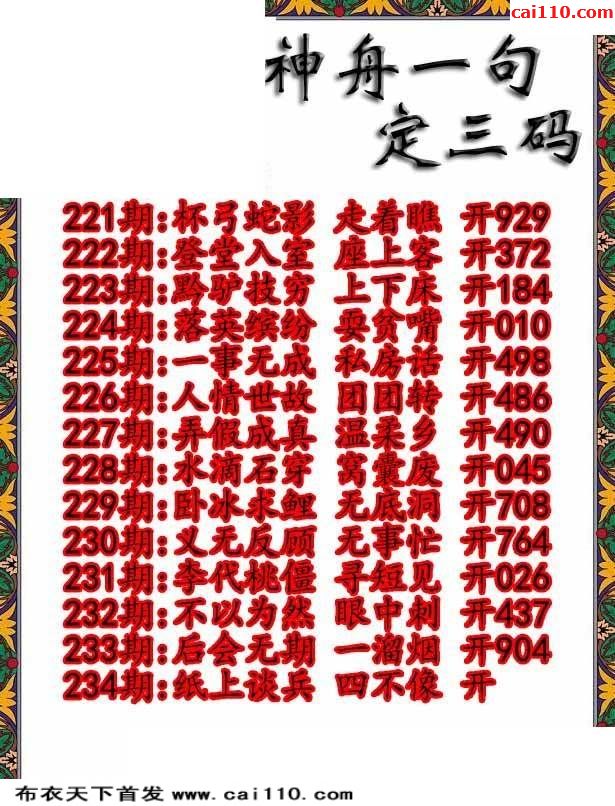 cai110.com
神舟一句
定三码
221期:杯弓蛇影 走着瞧 开929
222期:登堂入室 座上客 开372
223期:黔驴技穷 上下床 开184
224期:落英缤纷 耍贫嘴 开010
225期:一事无成 私房话 开498
226期:人情世故 团团转 开486
227期:弄假成真 温柔乡 开490
228期:水滴石穿 窝囊废 开045
229期:卧冰求鲤 无底洞 开708
230期:义无反顾 无事忙 开764
231期:李代桃僵 寻短见 开026
232期:不以为然 眼中刺 开437
233期:后会无期 一溜烟 开904
234期:纸上谈兵 四不像 开
布衣天下首发 www.cai110.com